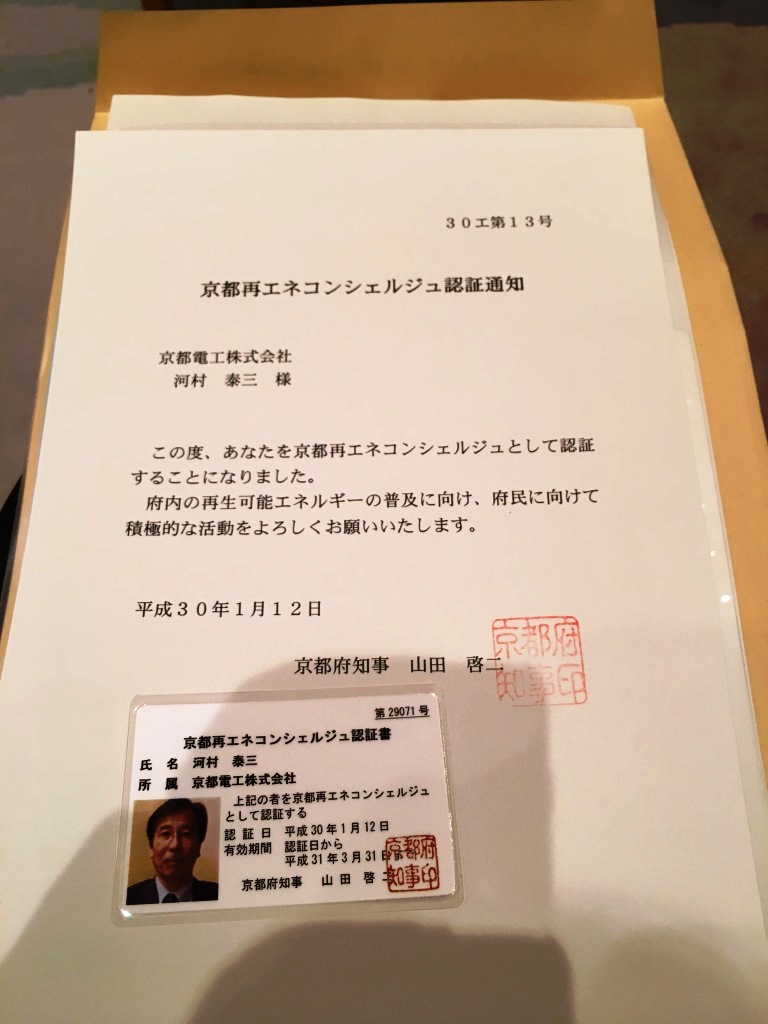 ３０エ第１３号
京都再エネコンシェルジュ認証通知
京都電工株式会社
河村　泰三　様
この度、あなたを京都再エネコンシェルジュとして認証
することになりました。
府内の再生可能エネルギーの普及に向け、府民に向けて
積極的な活動をよろしくお願いいたします。
平成３０年１月１２日
京都府知事　山田　啓二
京都府
知事印
第29071号
京都再エネコンシェルジュ認証書
氏　名　河村　泰三
所　属　京都電工株式会社
上記の者を京都再エネコンシェルジュ
として認証する
認 証 日　平成30年1月12日
有効期間　認証日から
平成31年3月31日
京都府知事　山田　啓二
京都府
知事印